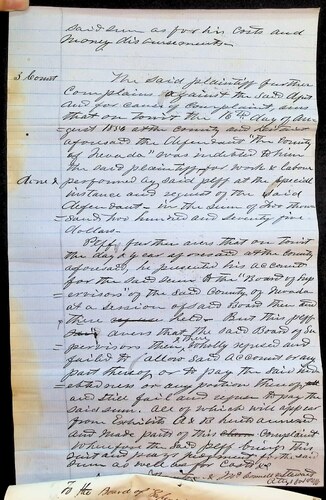 said sum as for his costs and
money disbursements
3 Count The said plaintiff further
complains against the said dfnt
and for cause of complaint, avers
that on towit the 16th day of Aug
gust 1856 at the county and
aforesaid the defendant "The County
of Nevada" was indebted to him
the said plaintiff for work & labour
performed by said plff at the special
instance and request of the said
defendant in the sum of two thou
sand two hundred and seventy five
dollars.
Plff further avers that on towit
the day & year aforesaid at the County
aforesaid, he presented his account
for the said sum to the "Board of Sup
ervisors of the said County of Nevada
at a session of said Board then and
there held. But this plff
avers that the said Board of Su
pervisors then & there wholly refused and
failed to allow said account or any
part thereof or to pay the said ind
ebtedness or any portion thereof
and still fail and refuse to pay the
said sum. All of which will appear
from Exhibits A & B herto annexed
and made parts of this complaint
Wherefore the said plff brings this
suit and prays judgment for the said
sum as well as for costs &c
Attys for Plff
To the Board of